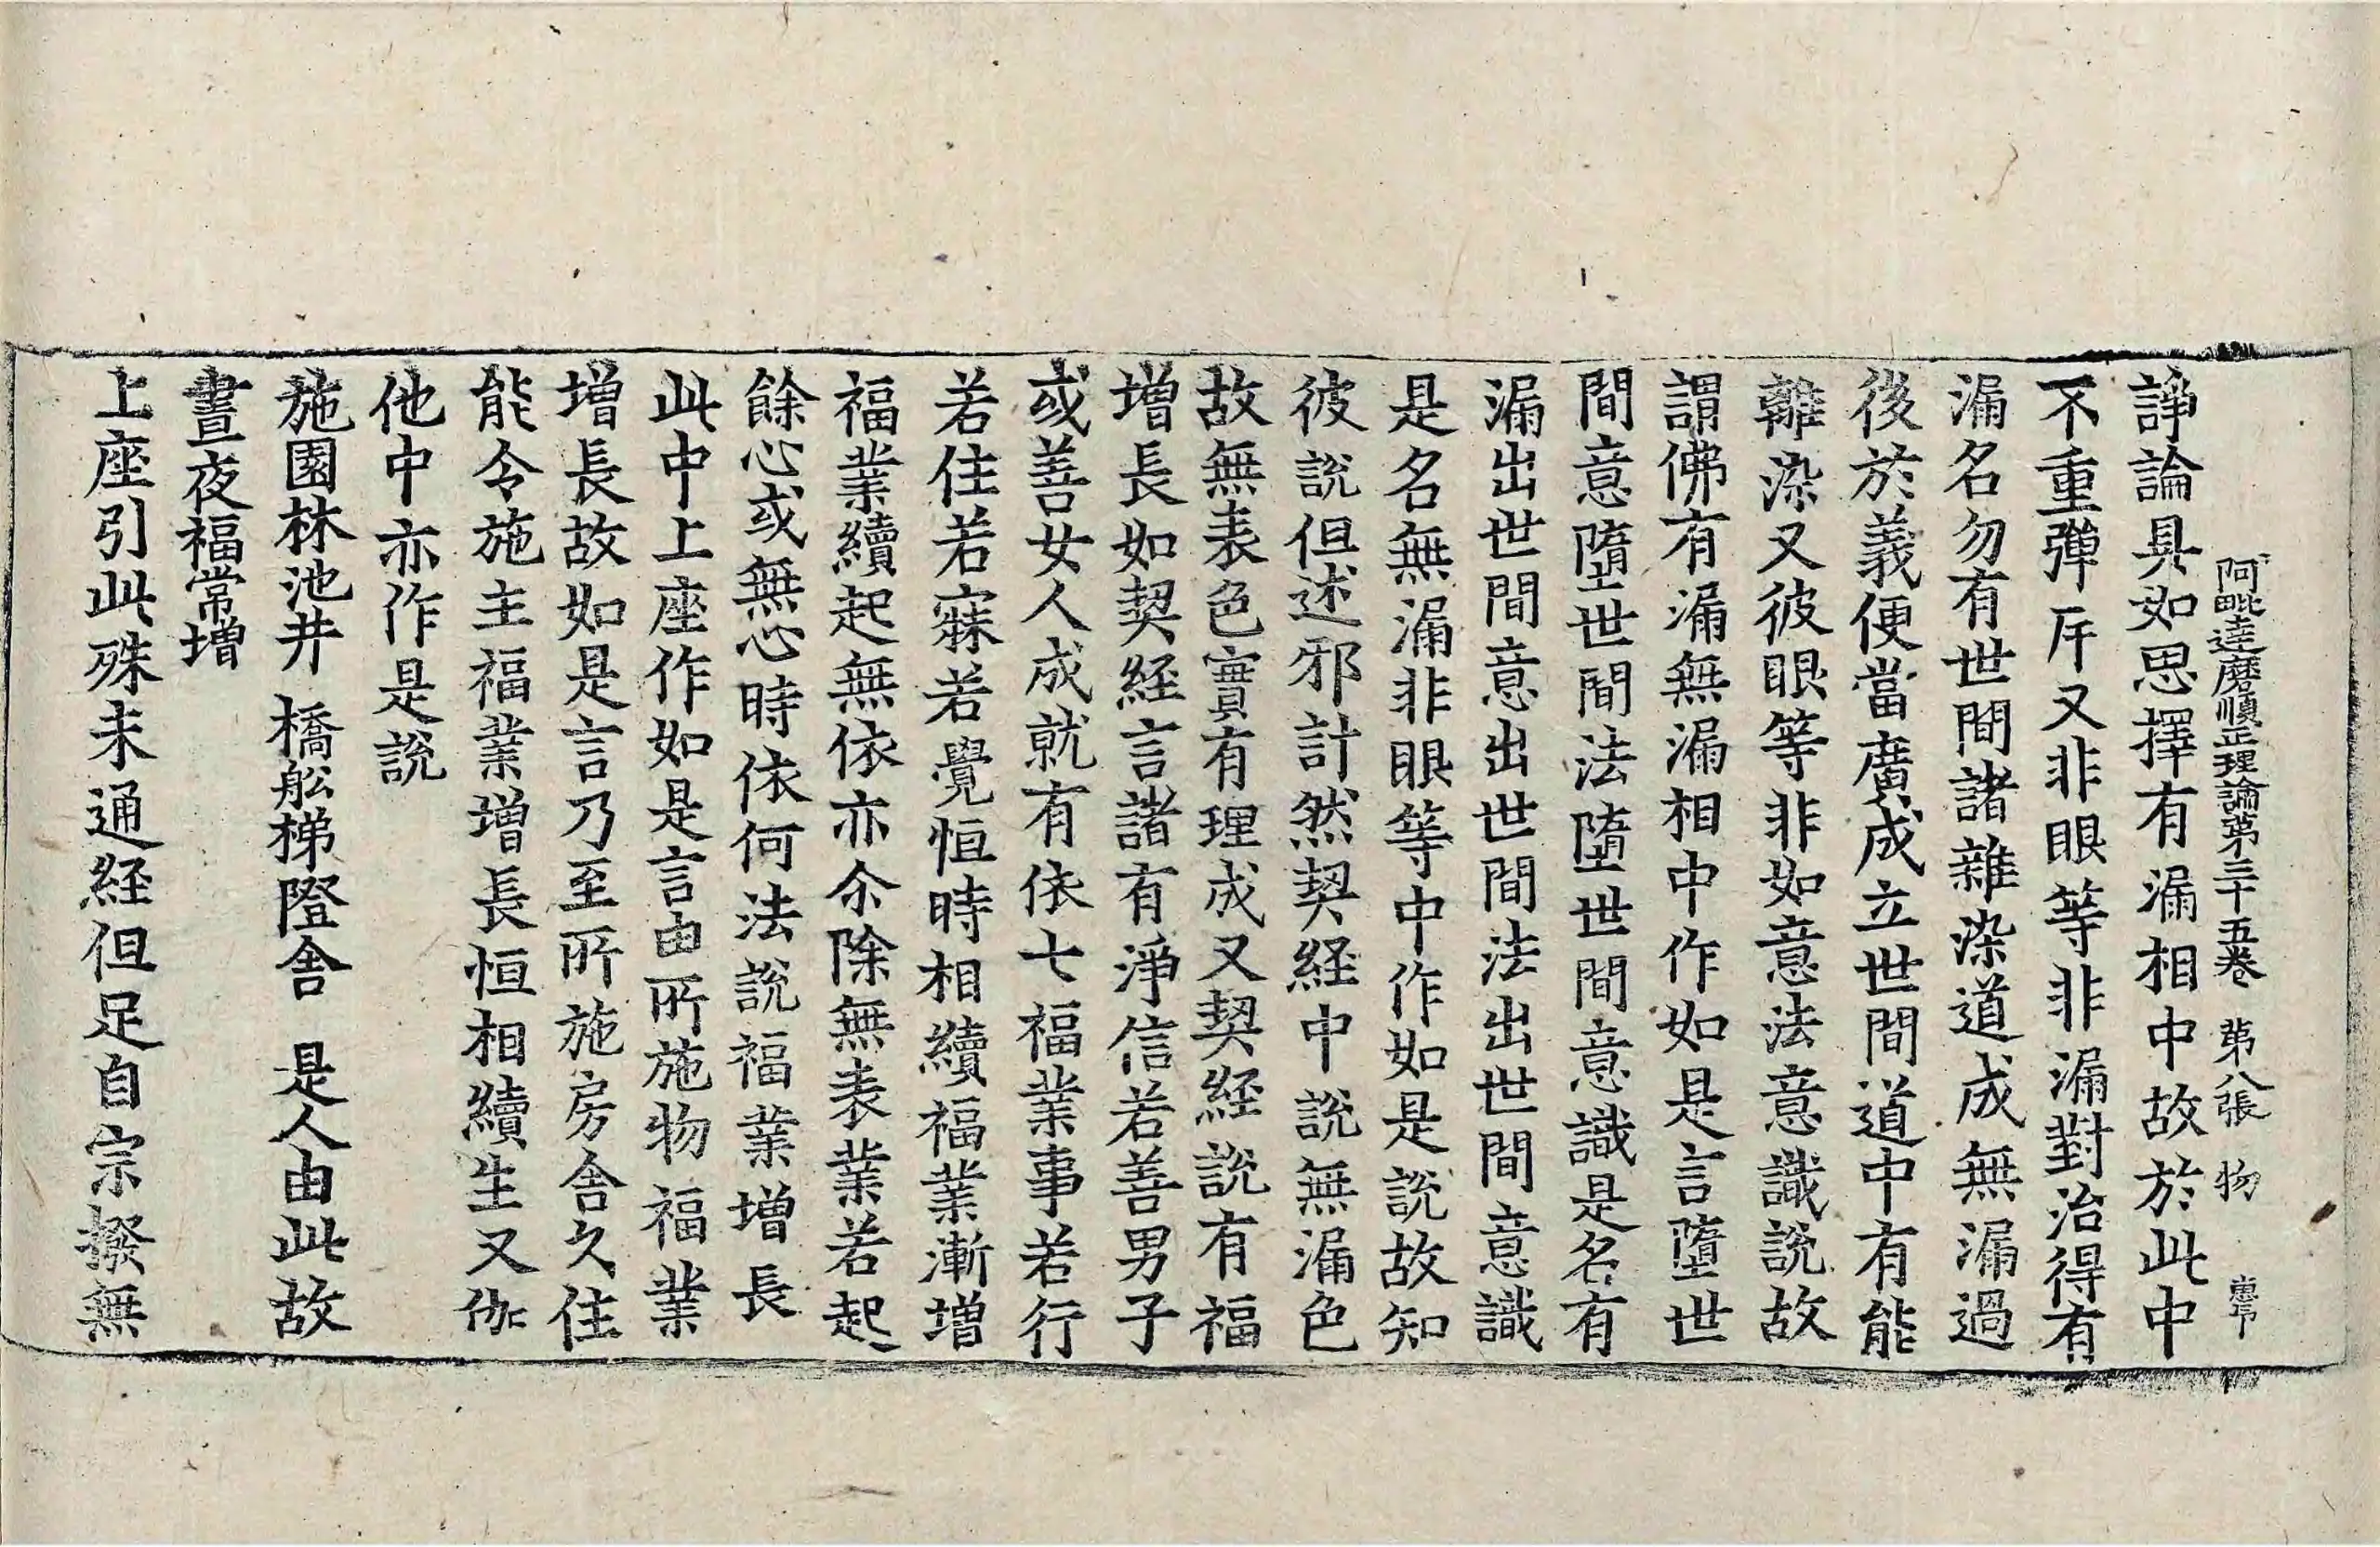 阿毗達磨順正理論第三十五卷 第八張 物
諍論具如思擇有漏相中故於此中
不重彈斥又非眼等非漏對治得有
漏名勿有世間諸雜染道成無漏過
後於義便當廣成立世間道中有能
離染又彼眼等非如意法意識說故
謂佛有漏無漏相中作如是言墮世
間意墮世間法墮世間意識是名有
漏出世間意出世間法出世間意識
是名無漏非眼等中作如是說故知
彼說但述邪計然契経中說無漏色
故無表色實有理成又契経說有福
增長如契経言諸有淨信若善男子
或善女人成就有依七福業事若行
若住若寐若覺恒時相續福業漸增
福業續起無依亦尒除無表業若起
餘心或無心時依何法說福業增長
此中上座作如是言由所施物福業
增長故如是言乃至所施房舍久住
能令施主福業增長恒相續生又伽
他中亦作是說
施園林池井 橋舩梯隥舍 是人由此故
晝夜福常增
上座引此殊未通経但足自宗撥無